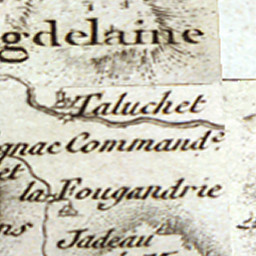 gdelaine
Taluchet
gnac Command.e
et
la Fougandrie
ns
Jadeau